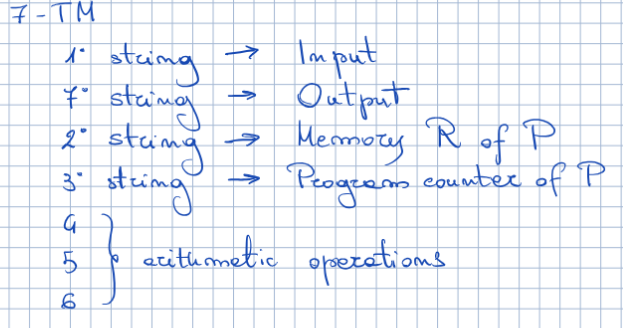 7-TM
1° string → Input
7° string → Output
2° string → Memory R of P
3° string → Program counter of P
4
5 } arithmetic operations
6